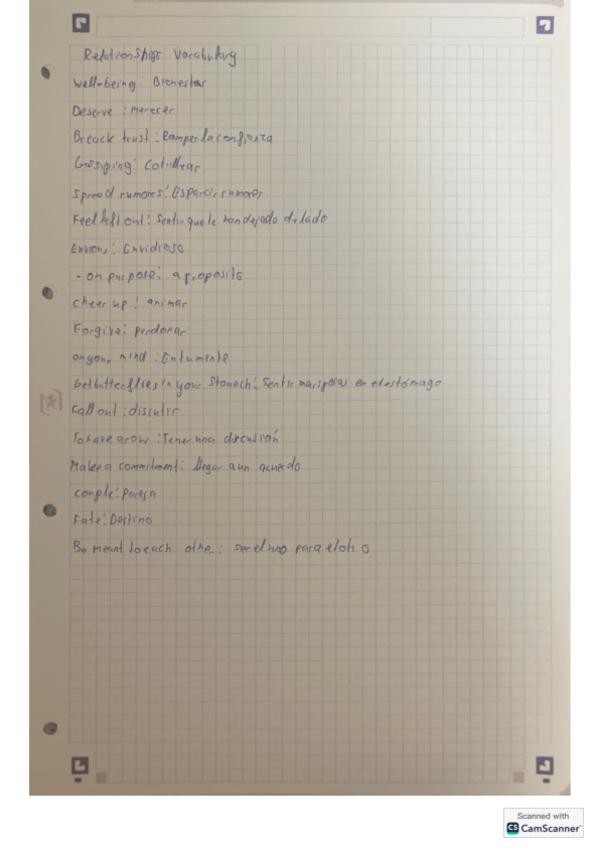 Relationships Vocabulary
Well-being: Bienestar
Deserve: Merecer
Breack trust: Romper la confianza
Gossiping: Cotillear
Spread rumores: Esparcir rumores
Feel left out: Sentir que te han dejado de lado
Envious: Envidioso
- on purpose: a proposito
cheer up: animar
Forgive: perdonar
on your mind: En tu mente
Get butterflies in your stomach: Sentir mariposas en el estómago
Fall out: discutir
To have a row: Tener una discusión
Make a commitment: llegar a un acuerdo
couple: Pareja
Fate: Destino
Be meant to each othe: ser el uno para el otro
Scanned with
CS CamScanner